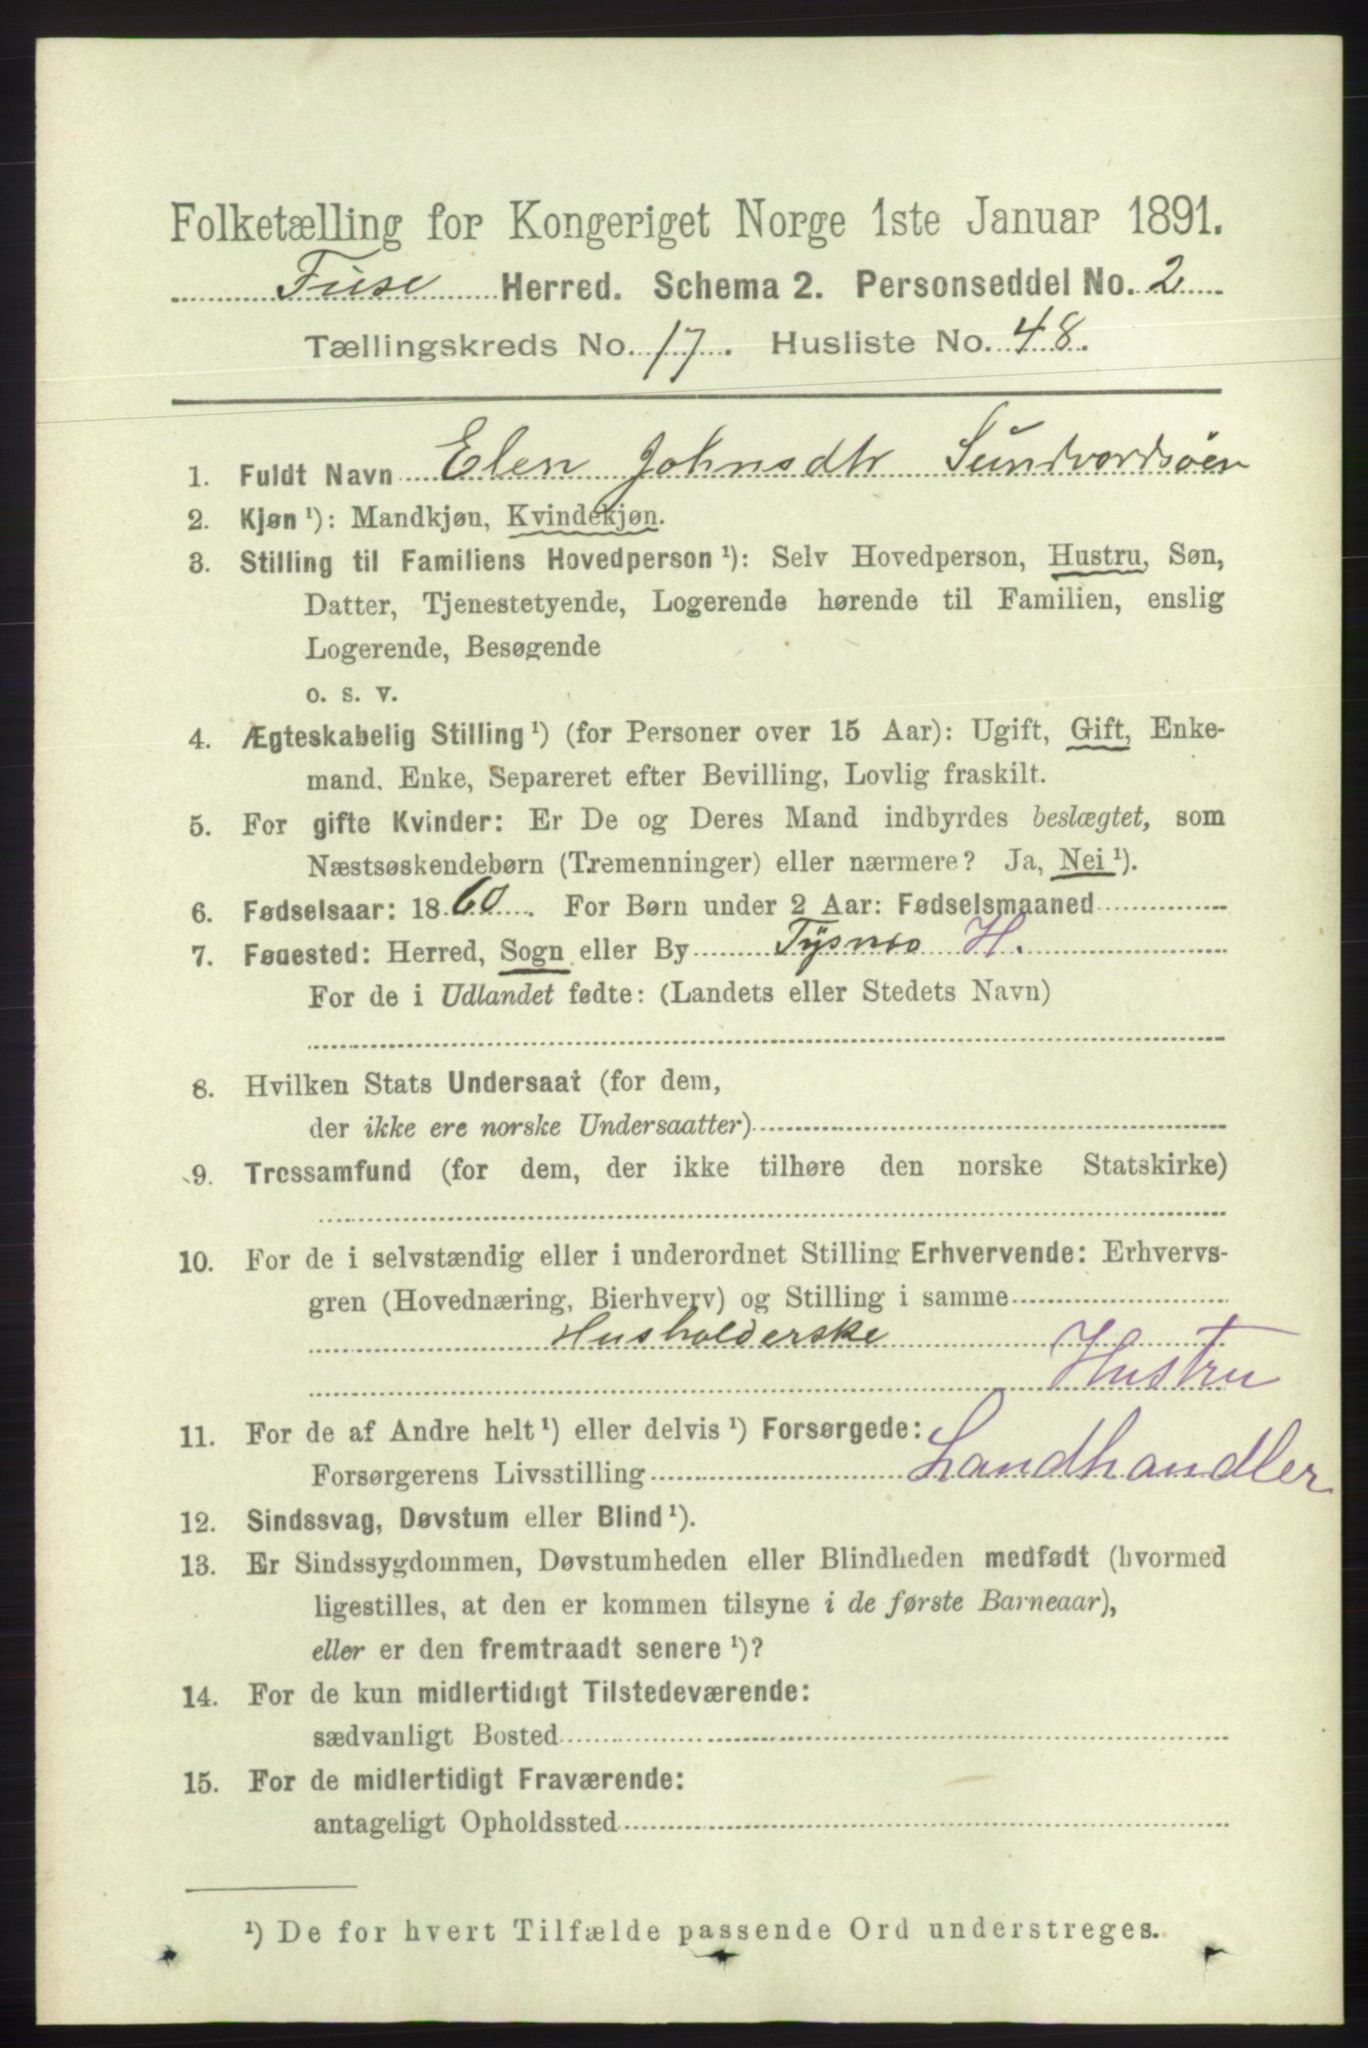 Folketælling for Kongeriget Norge 1ste Januar 1891.
Fuse Herred. Schema 2. Personseddel No. 2
Tællingskreds No. 17. Husliste No. 48.
1. Fuldt Navn Elen Johnsdtr Sundvordsøen
2. Kjøn ¹): Mandkjøn, Kvindekjøn.
3. Stilling til Familiens Hovedperson ¹): Selv Hovedperson, Hustru, Søn,
Datter, Tjenestetyende, Logerende hørende til Familien, enslig
Logerende, Besøgende
o. s. v.
4. Ægteskabelig Stilling ¹) (for Personer over 15 Aar): Ugift, Gift, Enke-
mand, Enke, Separeret efter Bevilling, Lovlig fraskilt.
5. For gifte Kvinder: Er De og Deres Mand indbyrdes beslægtet, som
Næstsøskendebørn (Tremenninger) eller nærmere? Ja, Nei ¹).
6. Fødselsaar: 1860. For Børn under 2 Aar: Fødselsmaaned
7. Fødested: Herred, Sogn eller By Tysnæs H.
For de i Udlandet fødte: (Landets eller Stedets Navn)
8. Hvilken Stats Undersaat (for dem,
der ikke ere norske Undersaatter)
9. Trossamfund (for dem, der ikke tilhøre den norske Statskirke)
10. For de i selvstændig eller i underordnet Stilling Erhvervende: Erhvervs-
gren (Hovednæring, Bierhverv) og Stilling i samme
Husholderske
Hustru
11. For de af Andre helt ¹) eller delvis ¹) Forsørgede:
Forsørgerens Livsstilling Landhandler
12. Sindssvag, Døvstum eller Blind ¹).
13. Er Sindssygdommen, Døvstumheden eller Blindheden medfødt (hvormed
ligestilles, at den er kommen tilsyne i de første Barneaar),
eller er den fremtraadt senere ¹)?
14. For de kun midlertidigt Tilstedeværende:
sædvanligt Bosted
15. For de midlertidigt Fraværende:
antageligt Opholdssted
¹) De for hvert Tilfælde passende Ord understreges.